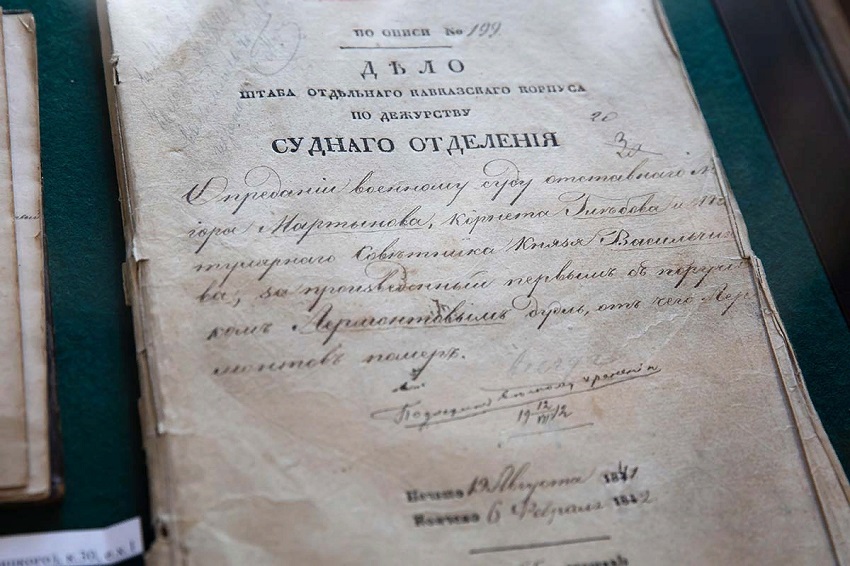 ПО ОПИСИ № 199.
ДѢЛО
ШТАБА ОТДѢЛЬНАГО КАВКАЗСКАГО КОРПУСА
ПО ДЕЖУРСТВУ
СУДНАГО ОТДЕЛЕНІЯ
20
О преданіи военному суду отставнаго Ма
іора Мартынова, Корнета Глѣбова и Ти
тулярнаго Совѣтника Князя Васильчи
ва, за произведенный первымъ съ поручи
комъ Лермонтовымъ дуэль, отъ чего Лер
монтовъ померъ.
Подлежит вѣчному храненію
19 12/VIII 12
Начато 19 Августа 1841
Кончено 6 Февраля 1842